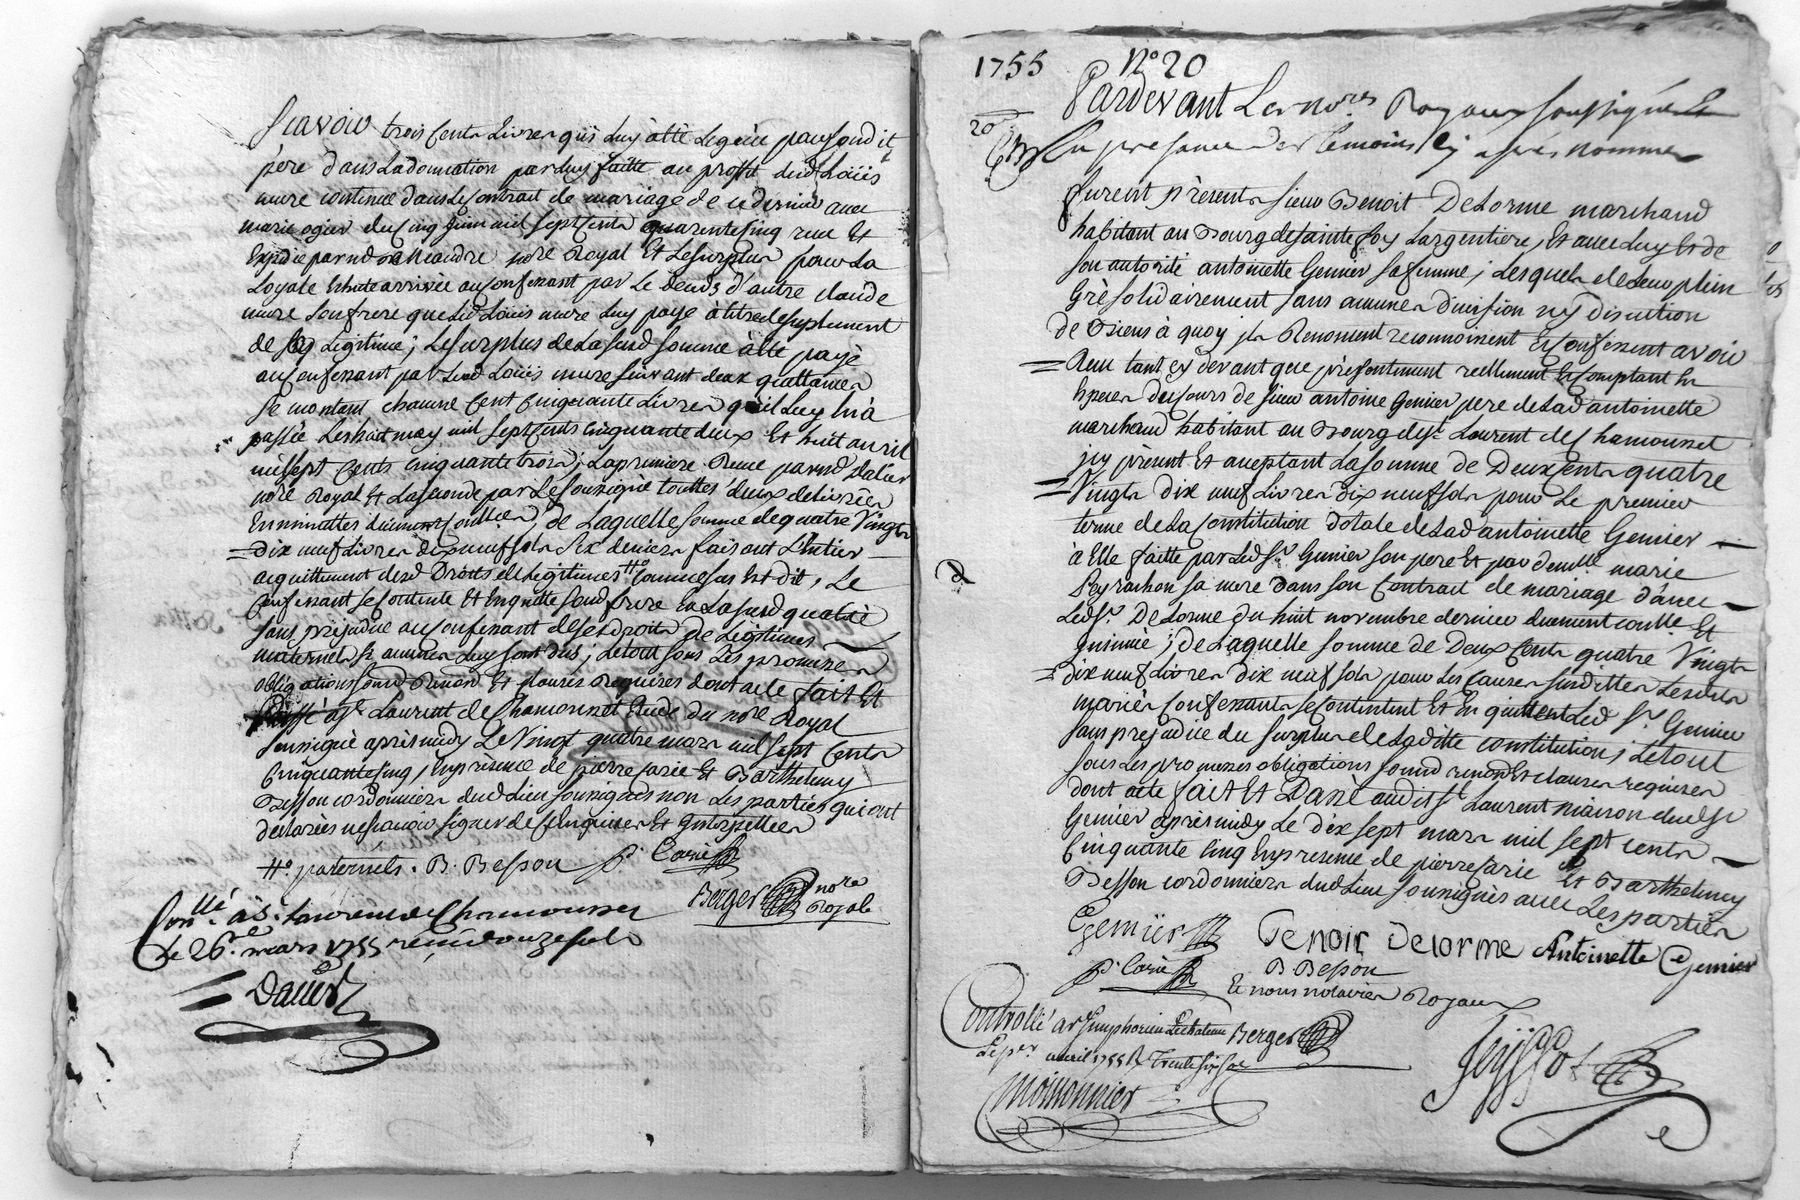 Scavoir trois Cents Livres qui Luy a été Leguée par sondit
père dans La donnation par Luy faitte au proffit dud Loüis
mure contenue dans Le Contrat de mariage de ce dernier avec
marie ogier du Cinq Juin mil sept Cents quarente Cinq receu Et
Expedie par nore Royal Et Le surplus pour La
Loyale Echute arrivée au Confessant par Le deceds d'autre claude
mure son frere que Led Loüis mure Luy paye à titre de suplement
de Legitime ; Le surplus de La susd somme à été payé
au Confessant par Led Loüis mure suivant deux quittances
se montant chacune Cent Cinquante Livres qu'il Luy En à
passée Les huit may mil sept Cents Cinquante deux Et huit avril
mil sept Cents Cinquante trois ; La premiere Receue par nd
nore Royal Et La seconde par Le soussigné touttes deux delivrées
En minuttes düement Conllées, de Laquelle somme de quatre Vingts
dix neuf Livres dix neuf sols six deniers faisant L'Entier
acquittement desd Droits de Legitimes #o Comme sus Est dit, Le
Confessant se Contente Et En quitte soud frere En La susd qualité
sans prejudice au Confessant de ses droits de Legitimes
maternels si aucuns Luy sont dus ; Le tout sous Les promesses
obligations soumd Renond Et clauses Requises dont acte fait Et
Passé à St Laurent de Chamousset Etude du nore Royal
soussigné après midy Le Vingt quatre mars mil sept Cents
Cinquante Cinq, En presence de pierre Carie Et Barthelemy
Besson cordonniers dud Lieu soussignés non Les parties qui ont
declarées ne scavoir signer de ce Enquises Et Interpellées
#o paternels. B. Besson P. Carie
Berger nore
Royale
Conllé à St Laurent de Chamousset
Le 26e mars 1755 receu douze sols
Daller
1755 No 20
Pardevant Les nores Royaux soussignés Et
20
En presence des temoins Cy après nommés
furent présents sieur Benoit Delorme marchand
habitant au Bourg de sainte foy Largentiere, Et avec Luy Et de
son autorité antoinette Gemier sa femme ; Lesquels de Leur plein
Gré solidairement sans aucune division ny discution
de Biens à quoy ils Renoncent reconnoissent Et Confessent avoir
Receu tant Cy devant que présentement reellement Et Comptant En
Espèces du Cours de sieur antoine Gemier père de Lad antoinette
marchand habitant au Bourg de St Laurent de Chamousset
icy present Et acceptant La somme de Deux Cents quatre
Vingts dix neuf Livres dix neuf sols pour Le premier
terme de La Constitution dotale de Lad antoinette Gemier
à Elle faitte par Led Sr Gemier son pere Et par demlle marie
Peyrachon sa mere dans son Contrat de mariage d'avec
Led Sr Delorme du huit novembre dernier duement Conllé Et
Insinué ; de Laquelle somme de Deux Cents quatre Vingts
dix neuf Livres dix neuf sols pour Les Causes susdittes Lesdits
mariés Confessants se Contentent Et En quittent Led Sr Gemier
sans prejudice du surplus de Laditte constitution ; Le tout
sous Les promesses obligations soumd renond Et clauses requises
dont acte fait Et Passé audit St Laurent maison dud Sr
Gemier après midy Le dix sept mars mil sept cents
Cinquante Cinq En presence de pierre Carie Et Barthelemy
Besson cordonniers dud Lieu soussignés avec Les parties
Gemier Benoit Delorme Antoinette Gemier
P. Carie B Besson
Et nous notaires Royaux
Controllé a St Simphorien Le chateau Berger
Le per avril 1755 R. trente six sols
Moissonnier